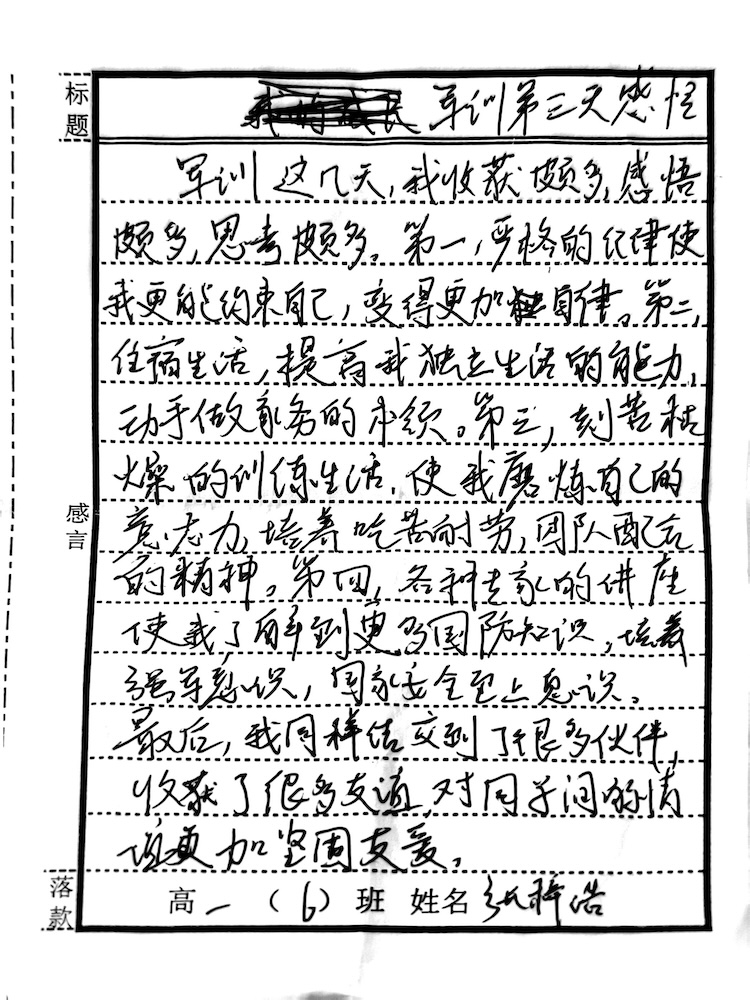 标题
军训第三天感悟
军训这几天,我收获颇多,感悟
颇多,思考颇多。第一,严格的纪律使
我更能约束自己,变得更加自律。第二,
住宿生活,提高我独立生活的能力,
动手做家务的本领。第三,刻苦枯
燥的训练生活,使我磨炼自己的
意志力,培养吃苦耐劳,团队配合
的精神。第四,各种专家的讲座
使我了解到更多国防知识,培养
强军意识,国家安全至上意识。
最后,我同样结交到了很多伙伴,
收获了很多友谊,对同学间的情
谊更加坚固友爱。
感言
落款
高一(6)班 姓名 张梓浩